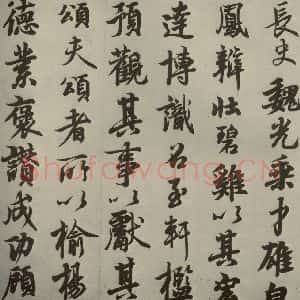 長史魏光乘才雄白
鳳辯壯碧雞以其宏
達博識召至軒檻
預觀其事以獻其
頌夫頌者所以揄揚
德業褒讚成功顧
Shufawang.CN